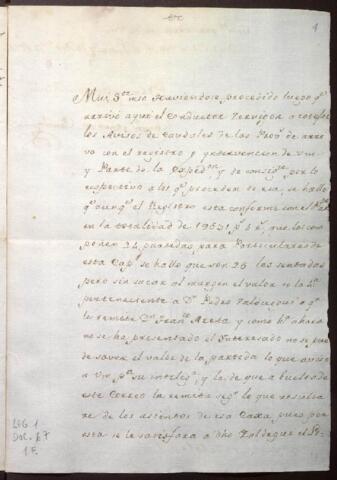 4
Mui Sor mio haviendose procedido luego qe
arrivó ayer el Conductor Terviçon a cotejar
los Avisos de Caudales de las Provs de arri
va con el registro y yntervencion de Vm
y Parte de la expedon y de consigon por lo
respectivo a los qe proceden de esa, se hallo
qe aunqe el Registro esta conforme con el
en la totalidad de 19631 ps 4 rs que los com
ponen 24 partidas para Particulares de
esta Capl se hallo que son 26 las sentadas
pero sin sacar al margen el valor de la
perteneciente a Dn Pedro Valdegues o qe
le remete Dn Franco Areta y como hta ahora
no se ha presentado el Interesado no se pue
de saver el valor de la partida lo que aviso
a Vm pa su inteliga y la de que a buelta de
este Correo la remeta segn lo que resulta
re de los asientos de esa Caxa pues por
esta se le satisfara a dho Valdegues el
LEG. 1
DOC. 67
1 F.